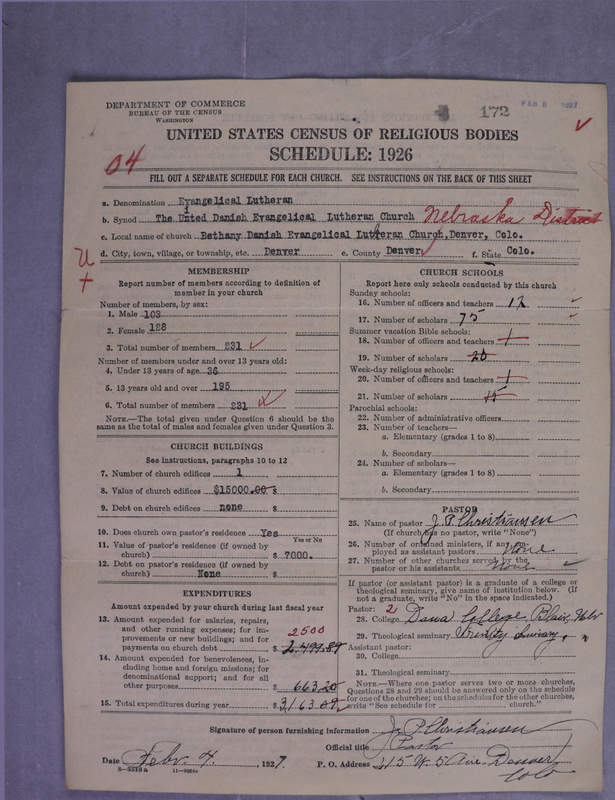 DEPARTMENT OF COMMERCE
BUREAU OF THE CENSUS
WASHINGTON
FEB 8 1927
172
UNITED STATES CENSUS OF RELIGIOUS BODIES
SCHEDULE: 1926
04
FILL OUT A SEPARATE SCHEDULE FOR EACH CHURCH. SEE INSTRUCTIONS ON THE BACK OF THIS SHEET
a. Denomination Evangelical Lutheran
b. Synod The United Danish Evangelical Lutheran Church Nebraska District
c. Local name of church Bethany Danish Evangelical Lutheran Church, Denver, Colo.
d. City, town, village, or township, etc. Denver e. County Denver f. State Colo.
MEMBERSHIP
Report number of members according to definition of
member in your church
Number of members, by sex:
1. Male 103
2. Female 128
3. Total number of members 231
Number of members under and over 13 years old:
4. Under 13 years of age 36
5. 13 years old and over 195
6. Total number of members 231
NOTE.—The total given under Question 6 should be the
same as the total of males and females given under Question 3.
CHURCH BUILDINGS
See instructions, paragraphs 10 to 12
7. Number of church edifices 1
8. Value of church edifices $15000.00 $
9. Debt on church edifices none $
10. Does church own pastor's residence? Yes
Yes or No
11. Value of pastor's residence (if owned by
church) $ 7000.
12. Debt on pastor's residence (if owned by
church) None $
EXPENDITURES
Amount expended by your church during last fiscal year
13. Amount expended for salaries, repairs,
and other running expenses; for im-
provements or new buildings; and for
payments on church debt $ 2,499.89
2500
14. Amount expended for benevolences,
including home and foreign missions; for
denominational support; and for all
other purposes $ 663.20
15. Total expenditures during year $3,163.09
CHURCH SCHOOLS
Report here only schools conducted by this church
Sunday schools:
16. Number of officers and teachers 12
17. Number of scholars 75
Summer vacation Bible schools:
18. Number of officers and teachers 1
19. Number of scholars 20
Week-day religious schools:
20. Number of officers and teachers 1
21. Number of scholars 15
Parochial schools:
22. Number of administrative officers
23. Number of teachers—
a. Elementary (grades 1 to 8)
b. Secondary
24. Number of scholars—
a. Elementary (grades 1 to 8)
b. Secondary
PASTOR
25. Name of pastor J. P. Christiansen
(If church has no pastor, write "None")
26. Number of ordained ministers, if any, em-
ployed as assistant pastors None
27. Number of other churches served by the
pastor or his assistants None
If pastor (or assistant pastor) is a graduate of a college or
theological seminary, give name of institution below. (If
not a graduate, write "No" in the space indicated.)
Pastor: 2
28. College Dana College, Blair, Nebr
29. Theological seminary Trinity Seminary, "
Assistant pastor:
30. College
31. Theological seminary
NOTE.—Where one pastor serves two or more churches,
Questions 28 and 29 should be answered only on the schedule
for one of the churches; on the schedules for the other churches,
write "See schedule for church."
Signature of person furnishing information J. P. Christiansen
Official title Pastor
Date Febr. 4, 1927. P. O. Address 415 W. 5 Ave. Denver,
Colo